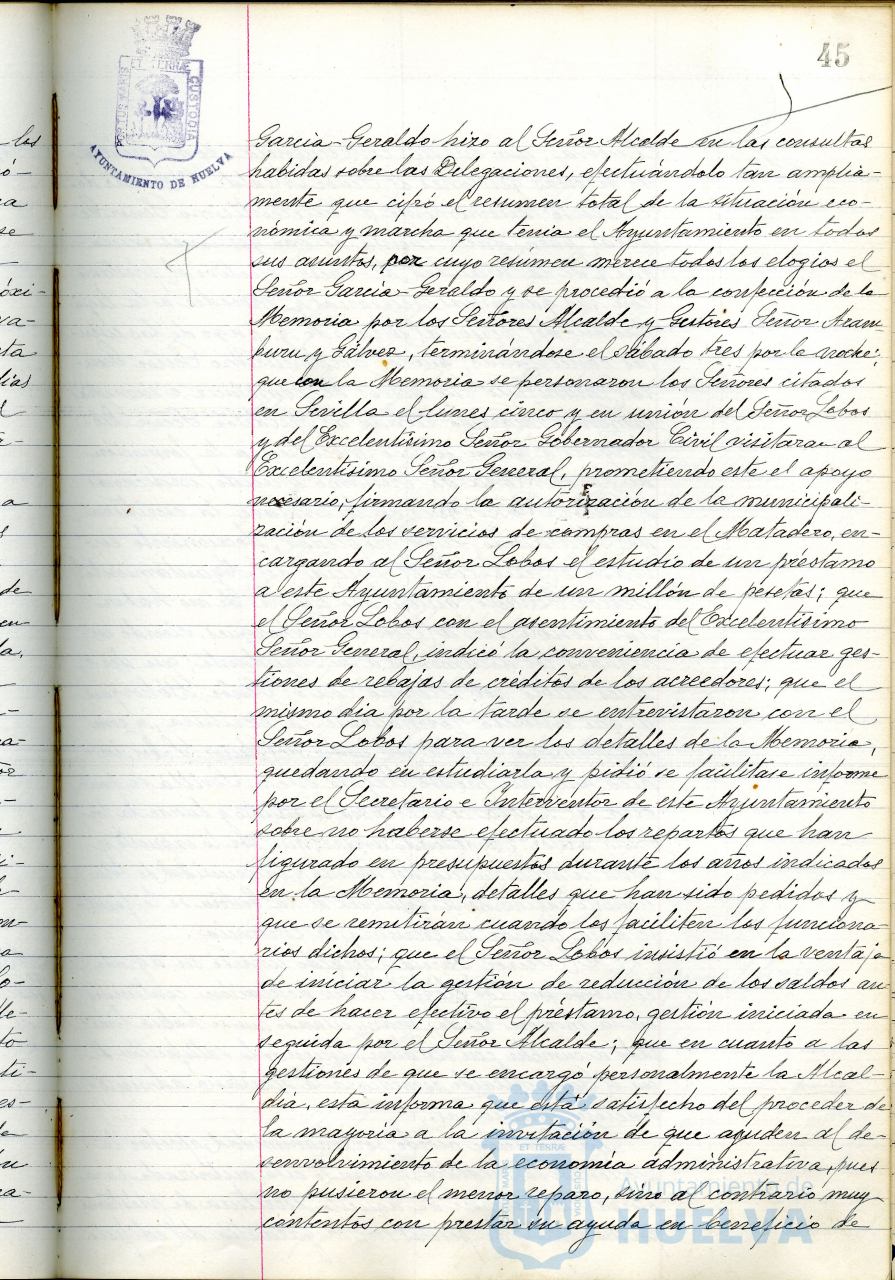 45
PORTUS MARIS
ET TERRÆ
CUSTODIA
AYUNTAMIENTO DE HUELVA
Garcia-Geraldo hizo al Señor Alcalde en las consultas
habidas sobre las Delegaciones, efectuándolo tan amplia-
mente que cifró el resumen total de la situación eco-
nómica y marcha que tenia el Ayuntamiento en todos
sus asuntos, por cuyo resúmen merece todos los elogios el
Señor Garcia-Geraldo y se procedió a la confección de la
Memoria por los Señores Alcalde y Gestores Señor Aram-
buru y Gálvez, terminándose el sábado tres por la noche;
que con la Memoria se personaron los Señores citados
en Sevilla el lunes cinco y en unión del Señor Lobos
y del Excelentísimo Señor Gobernador Civil visitaran al
Excelentísimo Señor General, prometiendo este el apoyo
necesario, firmando la autorización de la municipali-
zación de los servicios de compras en el Matadero, en-
cargando al Señor Lobos el estudio de un préstamo
a este Ayuntamiento de un millón de pesetas; que
el Señor Lobos con el asentimiento del Excelentísimo
Señor General, indicó la conveniencia de efectuar ges-
tiones de rebajas de créditos de los acreedores; que el
mismo dia por la tarde se entrevistaron con el
Señor Lobos para ver los detalles de la Memoria,
quedando en estudiarla y pidió se facilitase informe
por el Secretario e Interventor de este Ayuntamiento
sobre no haberse efectuado los repartos que han
figurado en presupuestos durante los años indicados
en la Memoria, detalles que han sido pedidos y
que se remitirán cuando los faciliten los funciona
rios dichos; que el Señor Lobos insistió en la ventaja
de iniciar la gestión de reducción de los saldos an
tes de hacer efectivo el préstamo, gestión iniciada en-
seguida por el Señor Alcalde; que en cuanto a las
gestiones de que se encargó personalmente la Alcal-
dia, esta informa que está satisfecho del proceder de
la mayoria a la invitación de que ayuden al de-
senvolvimiento de la economía administrativa, pues
no pusieron el menor reparo, sino al contrario muy
contentos con prestar su ayuda en beneficio de
Ayuntamiento de
HUELVA